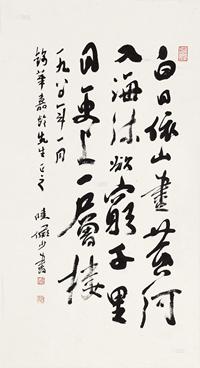 白日依山盡黄河
入海流欲窮千里
目更上一層樓
一九八 年 月
華嘉齡先生正之
陸儼少書